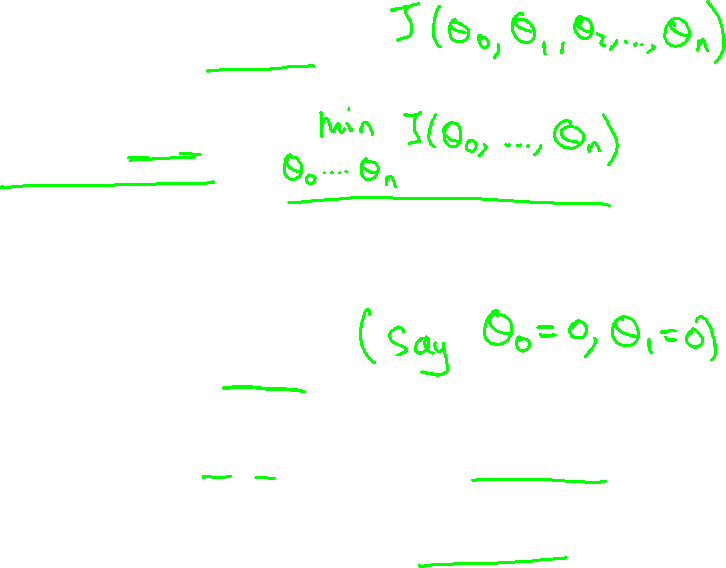 J(θ₀, θ₁, θ₂, ..., θₙ)
min J(θ₀, ..., θₙ)
θ₀ .... θₙ
(say θ₀ = 0, θ₁ = 0)